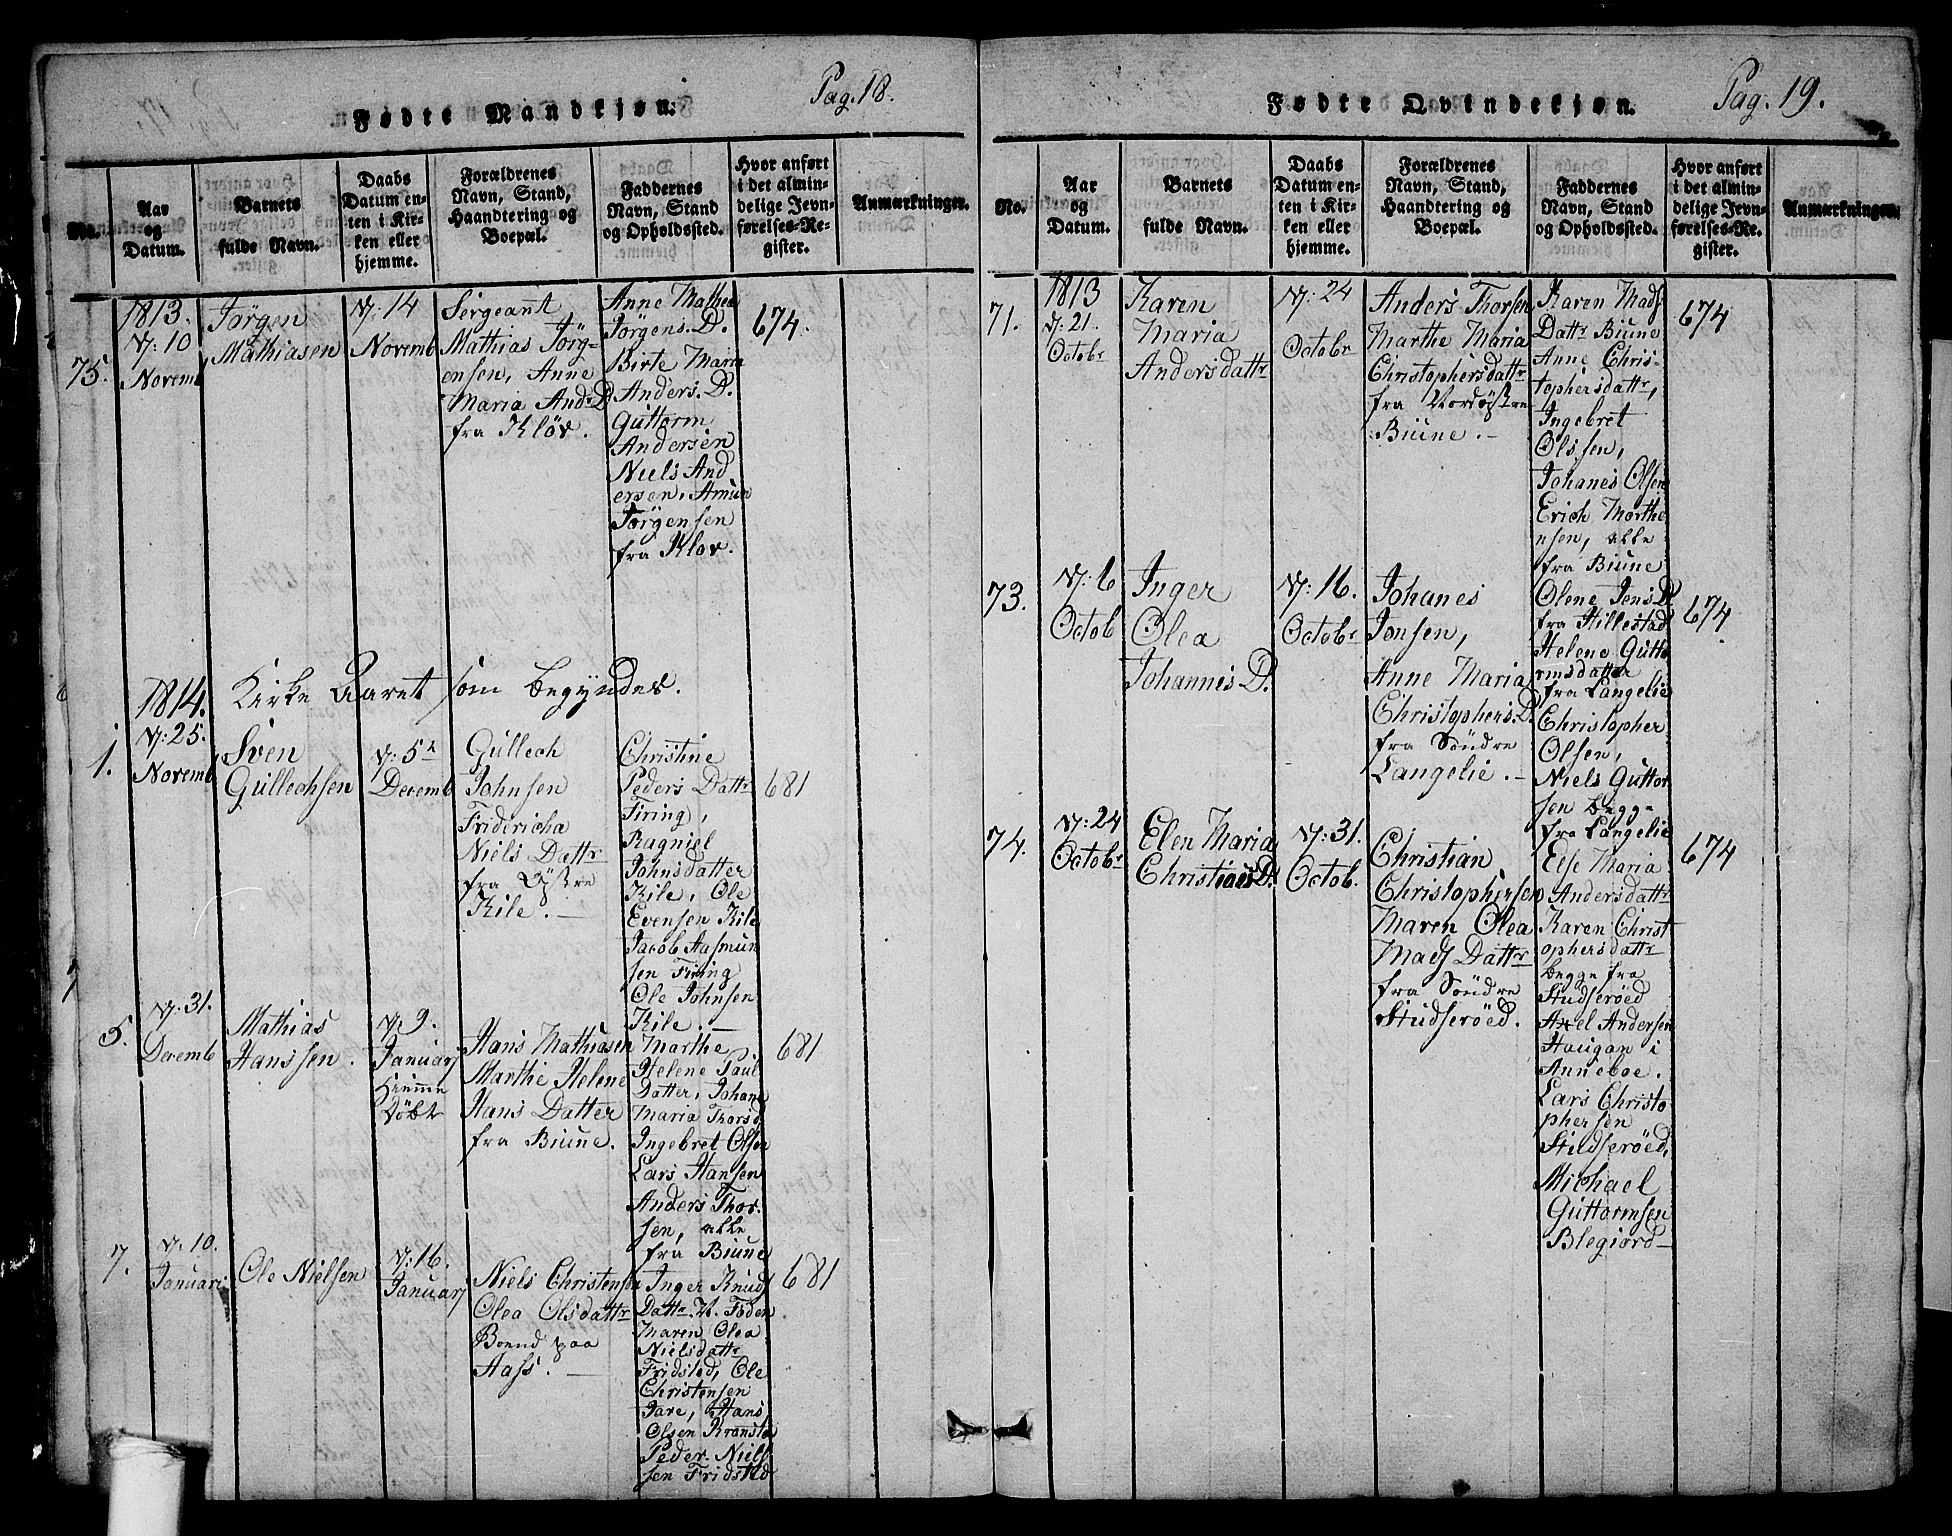 Pag. 18.
Fødte Mandkjøn.
No.
Aar
og
Datum.
Barnets
fulde Navn.
Daabs
Datum en-
ten i Kir-
ken eller
hjemme.
Forældrenes
Navn, Stand,
Haandtering og
Boepæl.
Faddernes
Navn, Stand
og Opholdssted.
Hvor anført
i det almin-
delige Jevn-
førelses-Re-
gister.
Anmærkninger.
75.
1813.
10
Novemb
Jörgen
Mathiasen
14
Novemb
Sergeannt
Mathias Jörg-
ensen, Anne
Maria Andr D
fra Kløv.
Anne Mathea
Jörgens. D.
Birte Maria
Anders. D.
Guttorm
Andersen
Niels And
ersen, Amun
Jörgensen
fra Kløv.
674.
1814.
Kirke Aaret som begyndes.
1.
25.
Novemb
Sven
Gullechsen
5
Decemb
Gullech
Johnsen
Fridericha
Niels Dattr
fra Östre
Kile.
Christine
Peders Dattr
Firing,
Ragniel
Johnsdatter
Kile, Ole
Evensen Kile
Jacob Aasmun
sen Firing
Ole Johnsen
Kile.
681
5.
31.
Decemb
Mathias
Hanssen.
9.
Januarj
hiemme
döbt
Hans Mathiasen
Marthe Helene
Hans Datter
fra Biune.
Marthe
Helene Paul
Datter, Johane
Maria Thorsd
Ingebret Olsen
Lars Hansen
Anders Thor-
sen, alle
fra Biune
681
7.
10.
Januari
Ole Nielsen
16.
Januarj
Niels Christensen
Olea Olsdattr
Boend paa
Aass.
Inger Knuds
Dattr. V. Föden
Maren Olea
Nielsdattr
Fridsted, Ole
Christensen
Jare, Hans
Olsen
Peder Niels
sen Fridsted
681
Pag. 19.
Fødte Qvindekjøn.
No.
Aar
og
Datum.
Barnets
fulde Navn.
Daabs
Datum en-
ten i Kir-
ken eller
hjemme.
Forældrenes
Navn, Stand,
Haandtering og
Boepæl.
Faddernes
Navn, Stand
og Opholdssted.
Hvor anført
i det almin-
delige Jevn-
førelses-Re-
gister.
Anmærkninger.
71.
1813
21.
Octobr
Karen
Maria
Andersdattr
24
Octobr
Anders Thorsen
Marthe Maria
Christophersdattr
fra Nordöstre
Biune.
Karen Mads
Dattr Biune
Anne Chris-
tophersdattr,
Ingebret
Olssen,
Johanes Olsen
Erich Morthe
nsen, alle
fra Biune
674
73.
6
Octob
Inger
Olea
Johannes D.
16.
Octobr
Johanes
Jonsen,
Anne Maria
Christophers. D.
fra Söndre
Langelie.
Olene Jens D.
fra Hillestad
Helene Gutto
rmsdatter
fra Langelie
Christopher
Olsen,
Niels Guttor
sen begge
fra Langelie
674
74.
24
Octobr
Elen Maria
Christians D.
31.
Octob.
Christian
Christophersen
Maren Olea
Mads Dattr
fra Söndre
Studseröed.
Else Maria
Andersdattr
Karen Christ
ophersdattr
begge fra
Studseröed
Axel Andersen
Haugan i
Anneboe.
Lars Christo
phersen
Studseröed,
Michael
Guttormsen
Blegiord
674